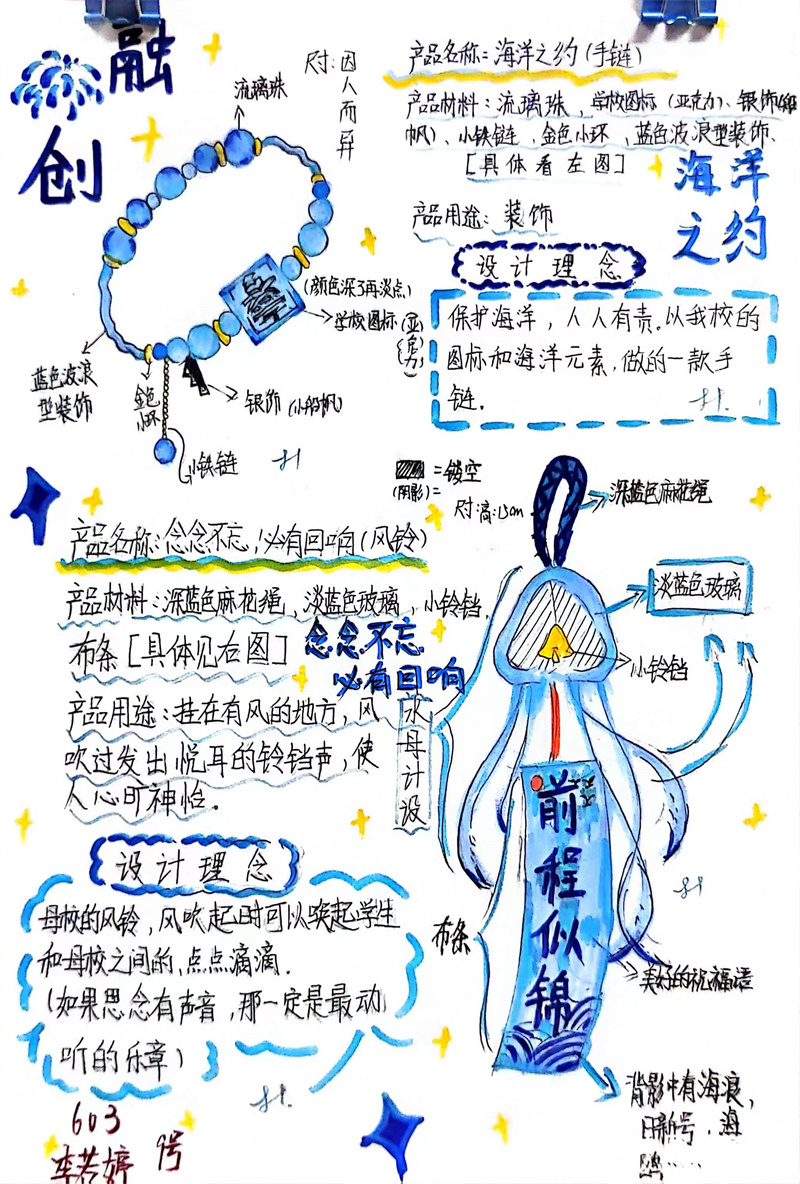 融创
流璃珠
尺寸:因人而异
(颜色深了再淡点)
学校图标(亚克力)
蓝色波浪
型装饰
金色
小环
银饰(小船帆)
小铁链
产品名称:海洋之约(手链)
产品材料:流璃珠、学校图标(亚克力)、银饰(船
帆)、小铁链、金色小环、蓝色波浪型装饰、
[具体看左图]
海洋
之约
产品用途:装饰
设计理念
保护海洋,人人有责.从我校的
图标和海洋元素,做的一款手
链.
产品名称:念念不忘,必有回响(风铃)
产品材料:深蓝色麻花绳、淡蓝色玻璃、小铃铛、
布条[具体见右图]
念念不忘
必有回响
产品用途:挂在有风的地方,风
吹过发出悦耳的铃铛声,使
人心旷神怡.
设计理念
母校的风铃,风吹起时可以唤起学生
和母校之间的,点点滴滴.
(如果思念有声音,那一定是最动
听的乐章)
=镂空
(阴影)=
尺寸:高:15cm
深蓝色麻花绳
淡蓝色玻璃
小铃铛
水母计设
布条
前程似锦
美好的祝福语
背影中有海浪,
海
603
李若婷 9号